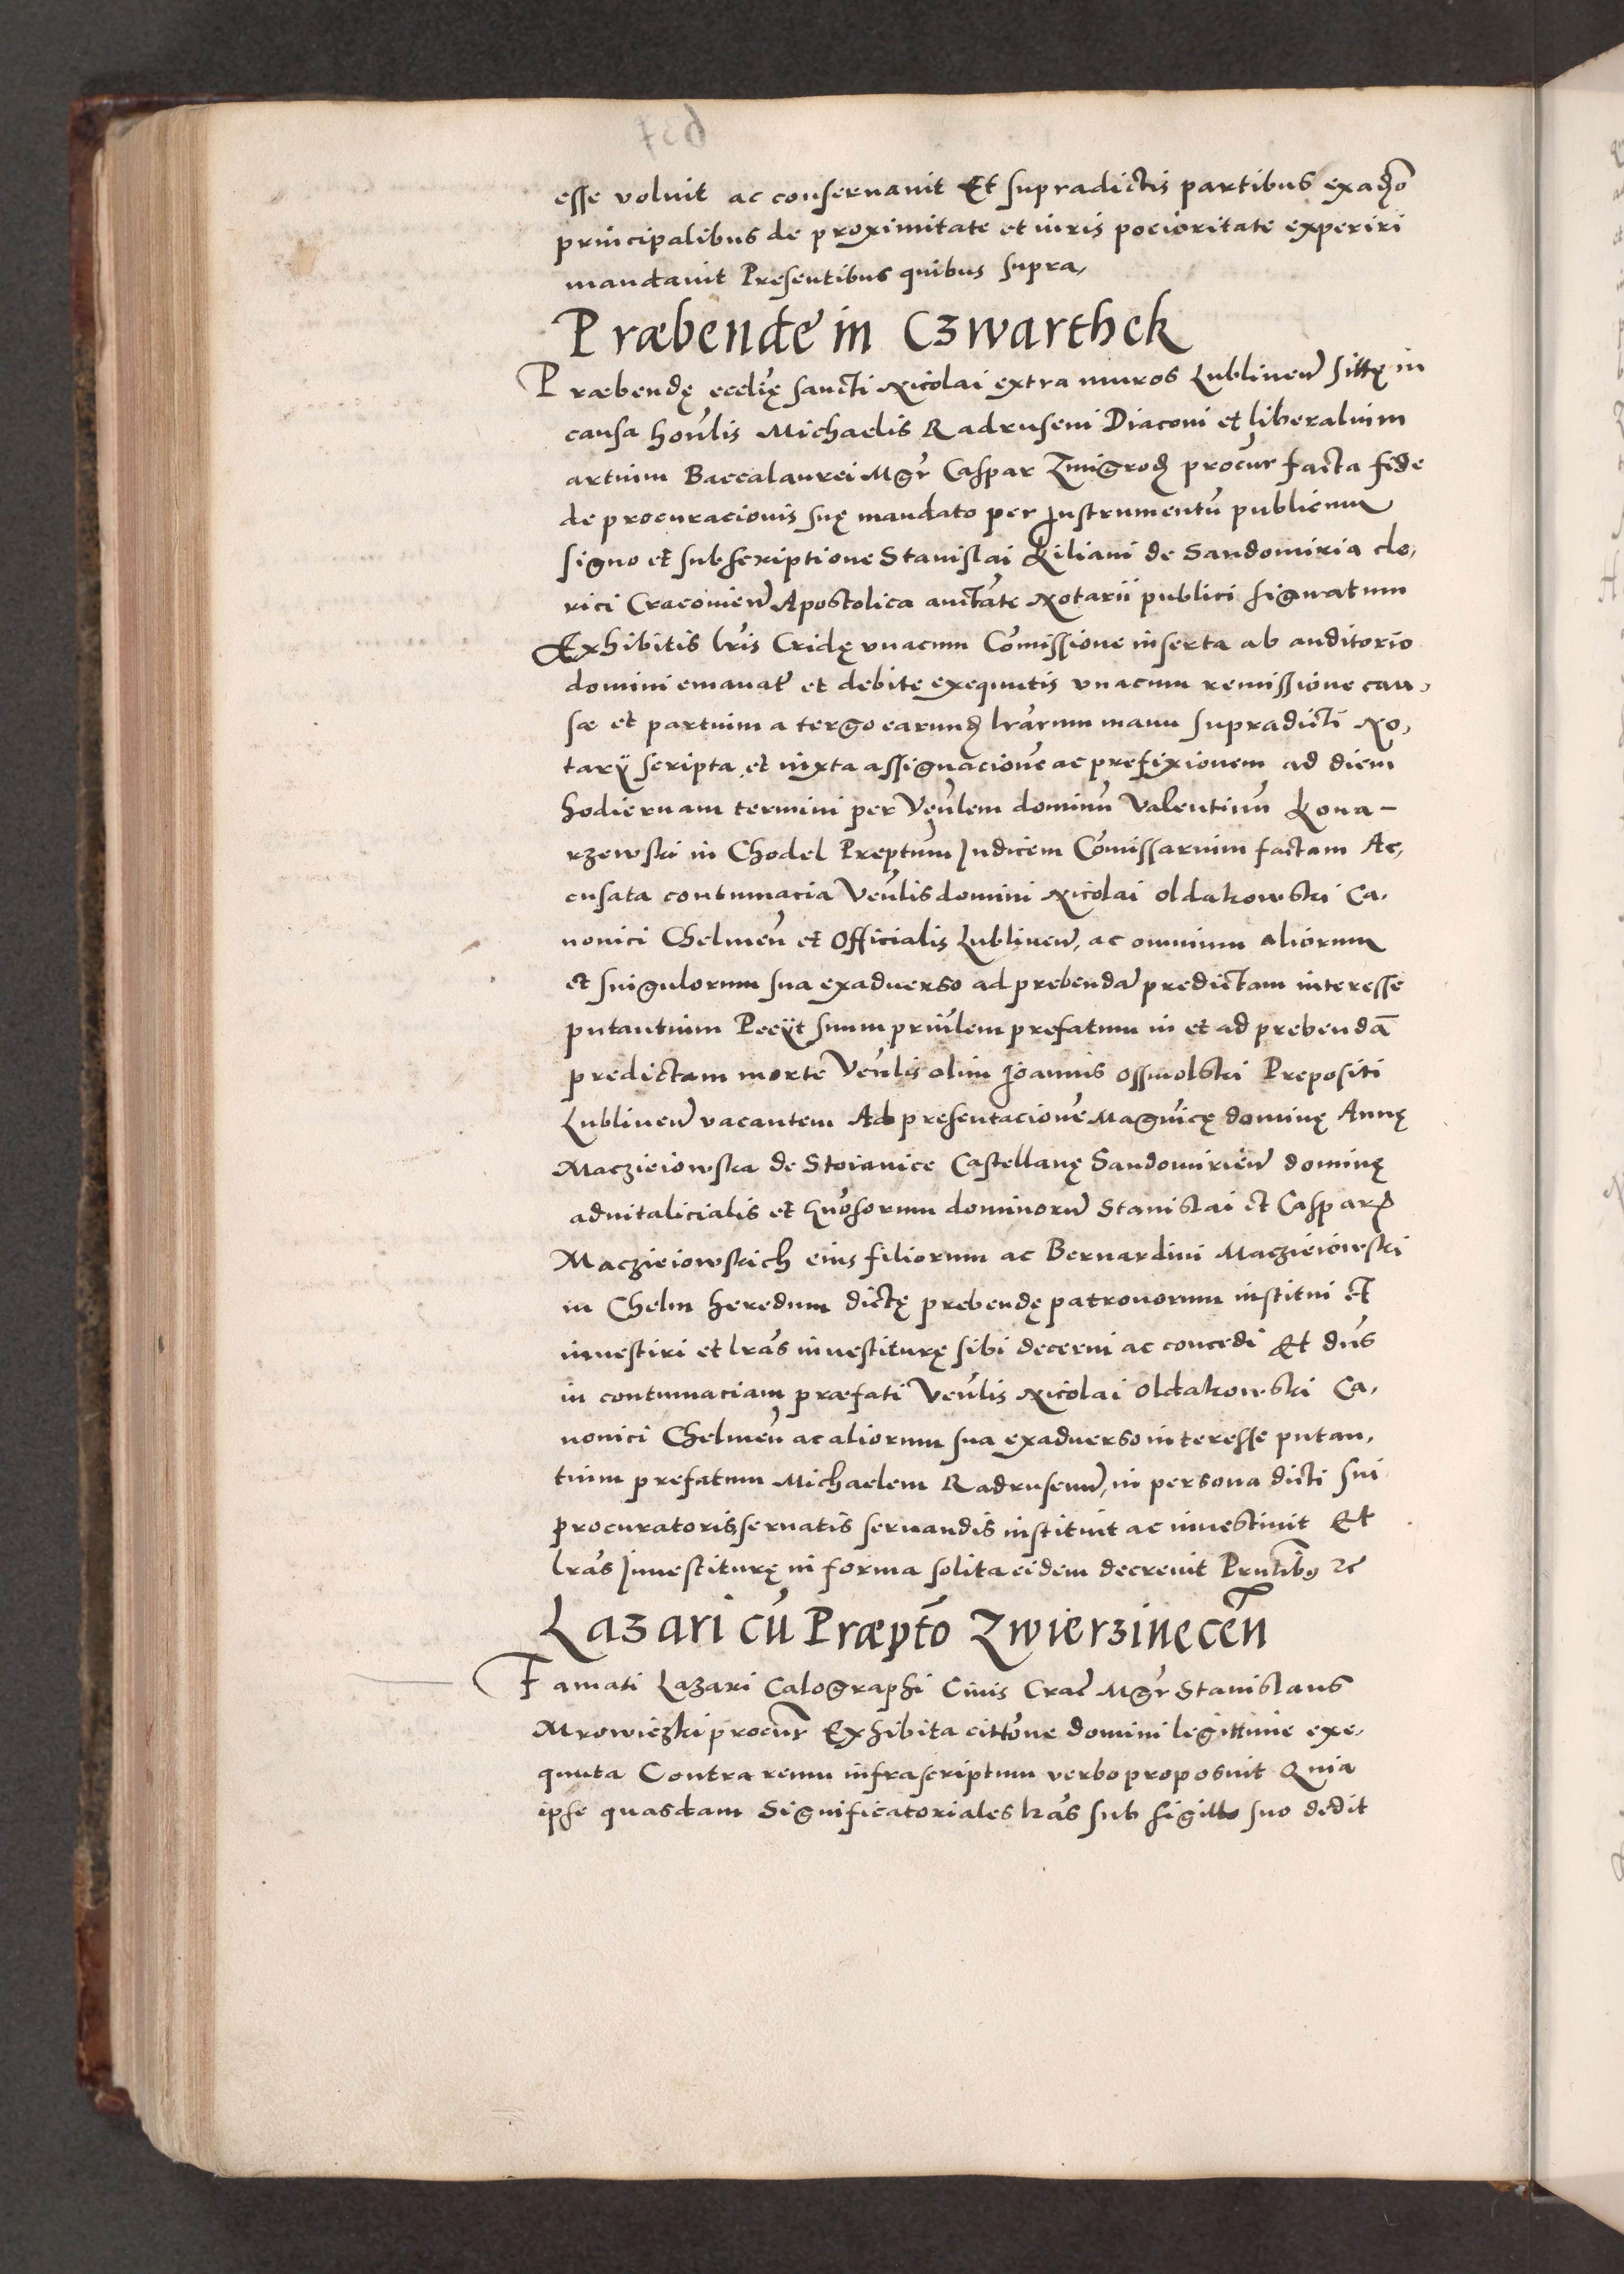 esse voluit ac conseruauit Et supradictis partibus
principalibus de proximitate et iuris pocioritate experiri
mandauit Presentibus quibus supra,
Præbende in Czwarthek
Præbendę ecclię sancti Nicolai extra muros Lublinen̄ sittę in
causa honlis Michaelis Radruseni Diaconi et liberalium
artium Baccalaurei Mgr̄ Caspar Zmigrod procur̄ facta fide
de procuracionis suę mandato per Instrumentū publicum
signo et subscriptione Stanislai Kiliani de Sandomiria cle,
rici Cracouien̄ Apostolica auctāte Notarii publici signatum
Exhibitis lr̄is Cridę vnacum Comissione inserta ab auditorio
domini emanat̄ et debite exequutis vnacum remissione cau,
sæ et partium a tergo earund̄ lrārum manu supradicti No,
tarÿ scripta et iuxta assignacionē ac prefixionem ad diem
hodiernam termini per Venlem dominū Valentinū Kona-
rzewski in Chodel Præptum Iudicem Comissarium factam Ac,
cusata contumacia Venlis domini Nicolai Oldakowski Ca,
nonici Chelmen̄ et Officialis Lublinen̄, ac omnium aliorum
et singulorum sua exaduerso ad prebendā predictam interesse
putantium Pecÿt suum prinlem prefatum in et ad prebendā
predictam morte Venlis olim Ioannis Ossmolski Prepositi
Lublinen̄ vacantem Ad presentacionē Magnicę dominę Annę
Maczieiowska de Stoianice Castellanę Sandomirien̄ dominę
aduitalicialis et Gn̄osorum dominorū Stanislai et Caspar
Maczieiowskich eius filiorum ac Bernardini Maczieiowski
in Chelm heredum dictę prebendę patronorum institui et
inuestiri et lrās inuestiturę sibi decerni ac concedi Et dn̄s
in contumaciam præfati Venlis Nicolai Oldakowski Ca,
nonici Chelmen̄ ac aliorum sua exaduerso interesse putan,
tium prefatum Michaelem Radrusenū, in persona dicti sui
procuratoris, seruatis seruandis instituit ac inuestiuit Et
lrās Inuestiturę in forma solita eidem decreuit Prn̄tibꝯ ꝛc
Lazari cū Præptō Zwierzinecen̄
Famati Lazari Calographi Ciuis Crac̄ Mgr̄ Stanislaus
Mrowiezki procur̄ Exhibita cittōne domini legittime exe,
quuta Contra reum infrascriptum verbo proposuit Quia
ipse quasdam Significatoriales lrās sub sigillo suo dedit